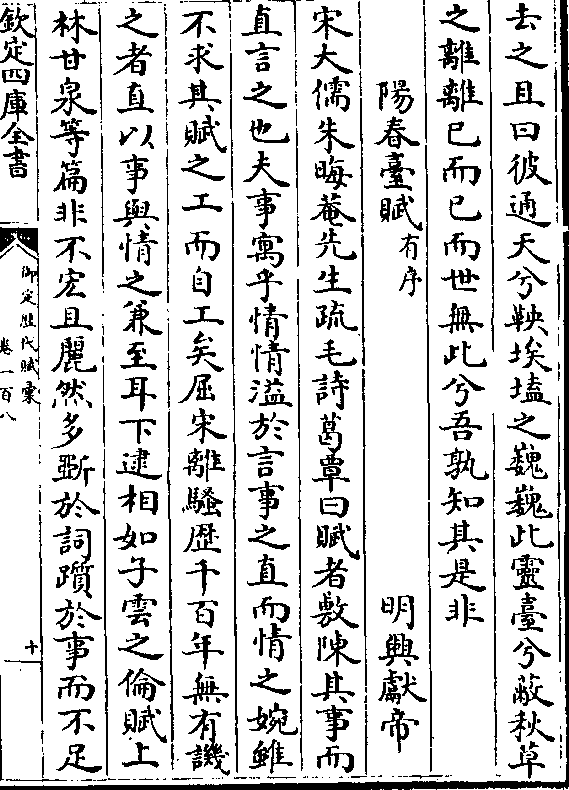 去之且曰彼通天兮軼埃壒之巍巍此靈臺兮蔽秋草
之離離已而已而世無此兮吾孰知其是非
陽春臺賦有序
明興獻帝
宋大儒朱晦菴先生疏毛詩葛覃曰賦者敷陳其事而
直言之也夫事寓乎情情溢於言事之直而情之婉雖
不求其賦之工而自工矣屈宋離騷歴千百年無有譏
之者直以事與情之兼至耳下逮相如子雲之倫賦上
林甘泉等篇非不宏且麗然多斵於詞躓於事而不足
欽定四庫全書
御定歴代賦彚
卷一百八
十